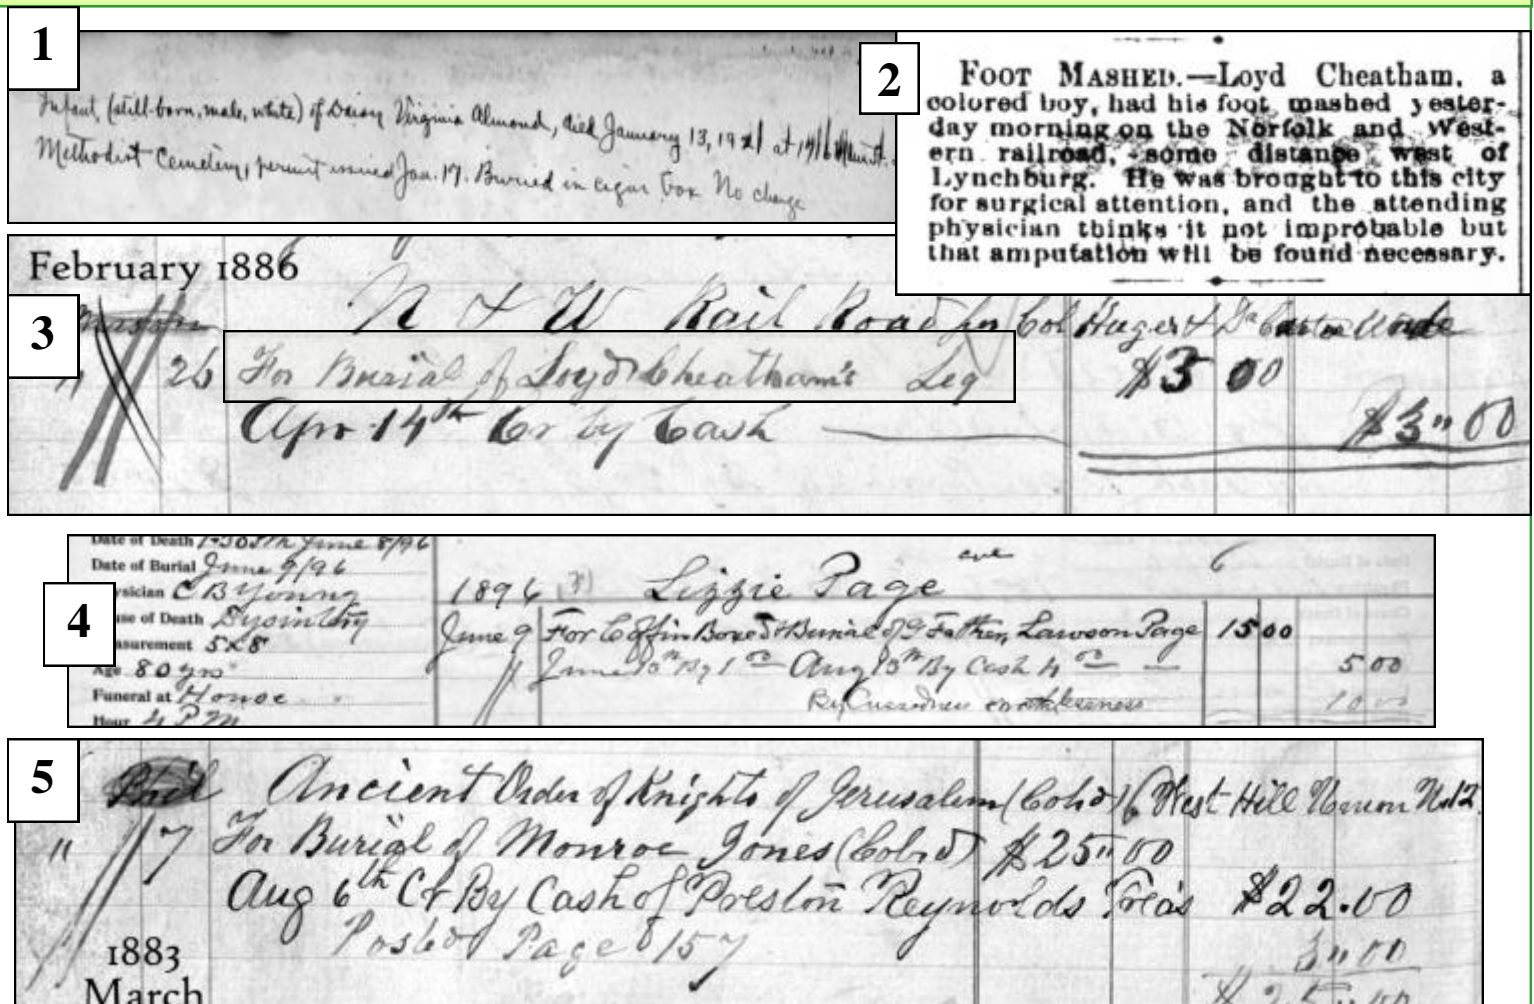 1
Infant, (still-born, male, white) of Daisy Virginia Almond, died January 13, 19 at
Methodist Cemetery, permit issued Jan. 17. Buried in cigar box. No charge
2
FOOT MASHED.—Loyd Cheatham, a
colored boy, had his foot mashed yester-
day morning on the Norfolk and West-
ern railroad, some distance west of
Lynchburg. He was brought to this city
for surgical attention, and the attending
physician thinks it not improbable but
that amputation will be found necessary.
February 1886
3
N & W Rail Road for Col Huger &
" 26 For Burial of Loyd Cheatham's Leg $3 00
Apr 14th Cr by Cash $3 " 00
4
Date of Death June 8/96
Date of Burial June 9/96
ysician C B Young
use of Death Dysintery
asurement 5x8
Age 80 yrs
Funeral at House
Hour 4 P M
ave 6
1896 Lizzie Page
June 9 For Coffin Boxed & Burial of G Father, Lawson Page 15 00
June 13th By 1 00 Aug 13th By Cash 4 00 — 5 00
By Cussedness 10 00
5
Ancient Order of Knights of Jerusalem (Col'd) West Hill Union No 12
" 7 For Burial of Monroe Jones (Col'd) $25 " 00
Aug 6th Ct By Cash of Preston Reynolds Treas $22.00
Posted Page 157 3 " 00
$ 25 " 00
1883
March